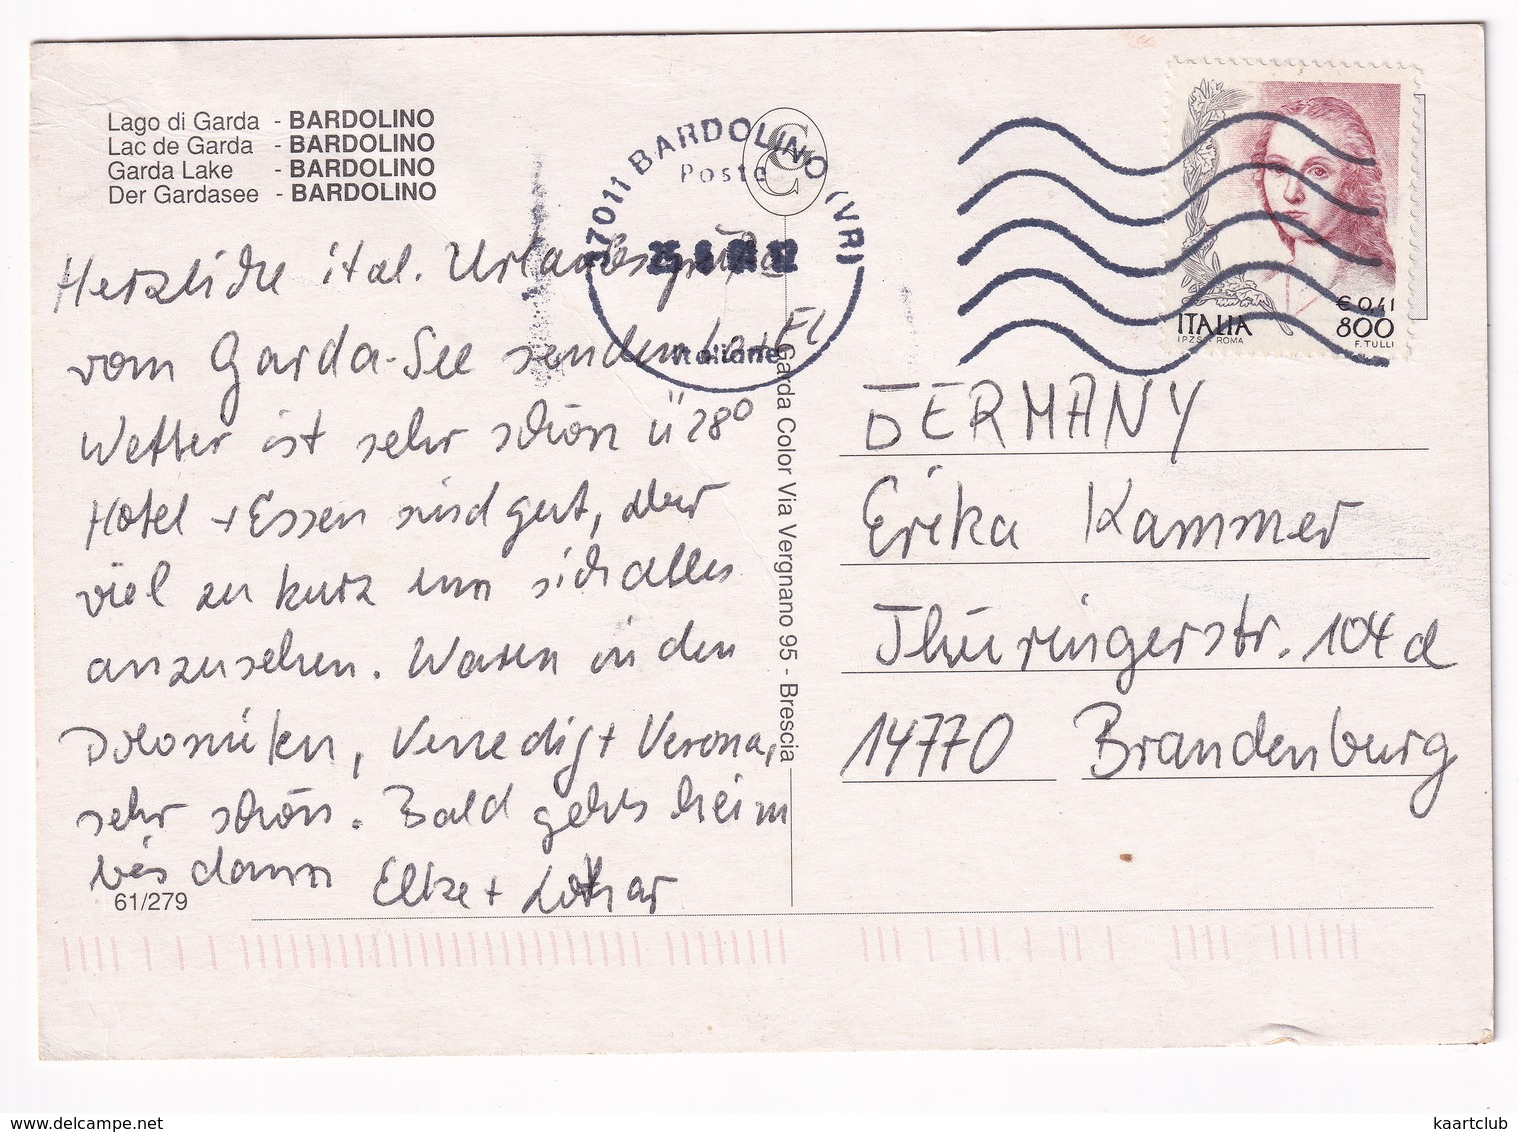 Lago di Garda - BARDOLINO
Lac de Garda - BARDOLINO
Garda Lake - BARDOLINO
Der Gardasee - BARDOLINO
Herzliche ital. Urlaubsgrüße
vom Garda-See senden Lo + El
Wetter ist sehr schön ü 28°
Hotel + Essen sind gut, aber
viel zu kurz um sich alles
anzusehen. Waren in den
Dolomiten, Venedig + Verona,
sehr schön. Bald gehts heim
bis dann Elke + Lothar
61/279
Garda Color Via Vergnano 95 - Brescia
37011 BARDOLINO (VR)
Poste
Italiane
€ 0,41
ITALIA 800
I.P.Z.S. ROMA F. TULLI
GERMANY
Erika Kammer
Thüringerstr. 104 d
14770 Brandenburg
www.delcampe.net
kaartclub